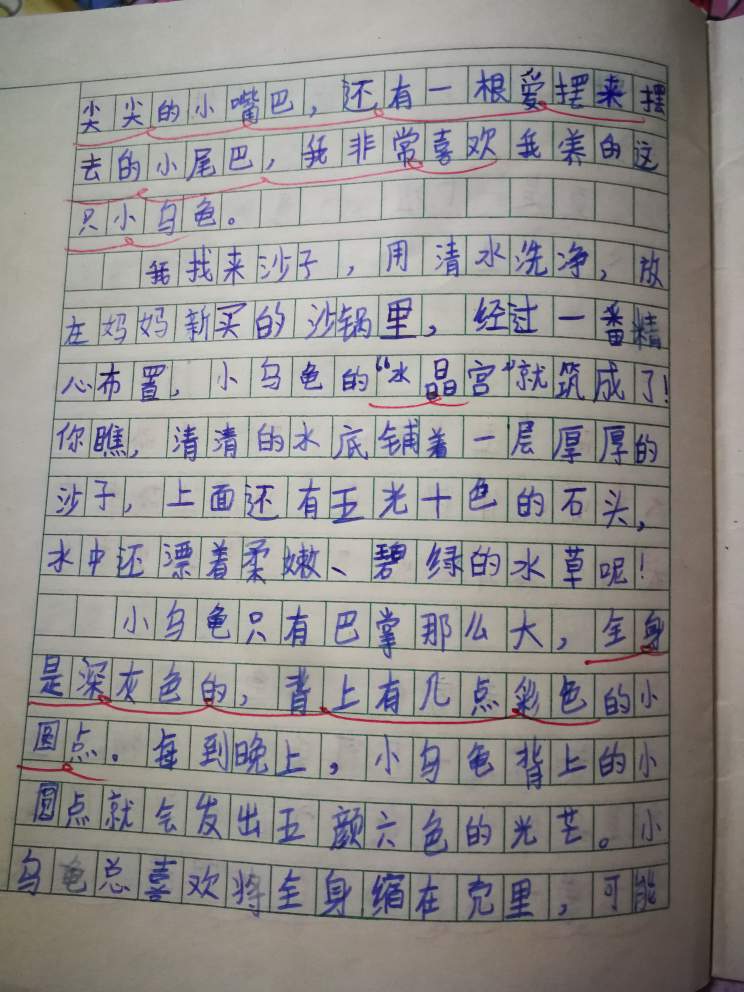 尖尖的小嘴巴，还有一根爱摆来摆
去的小尾巴，我非常喜欢我养的这
只小乌龟。
我找来沙子，用清水洗净，放
在妈妈新买的沙锅里，经过一番精
心布置，小乌龟的“水晶宫”就筑成了！
你瞧，清清的水底铺着一层厚厚的
沙子，上面还有五光十色的石头，
水中还漂着柔嫩、碧绿的水草呢！
小乌龟只有巴掌那么大，全身
是深灰色的，背上有几点彩色的小
圆点。每到晚上，小乌龟背上的小
圆点就会发出五颜六色的光芒。小
乌龟总喜欢将全身缩在壳里，可能